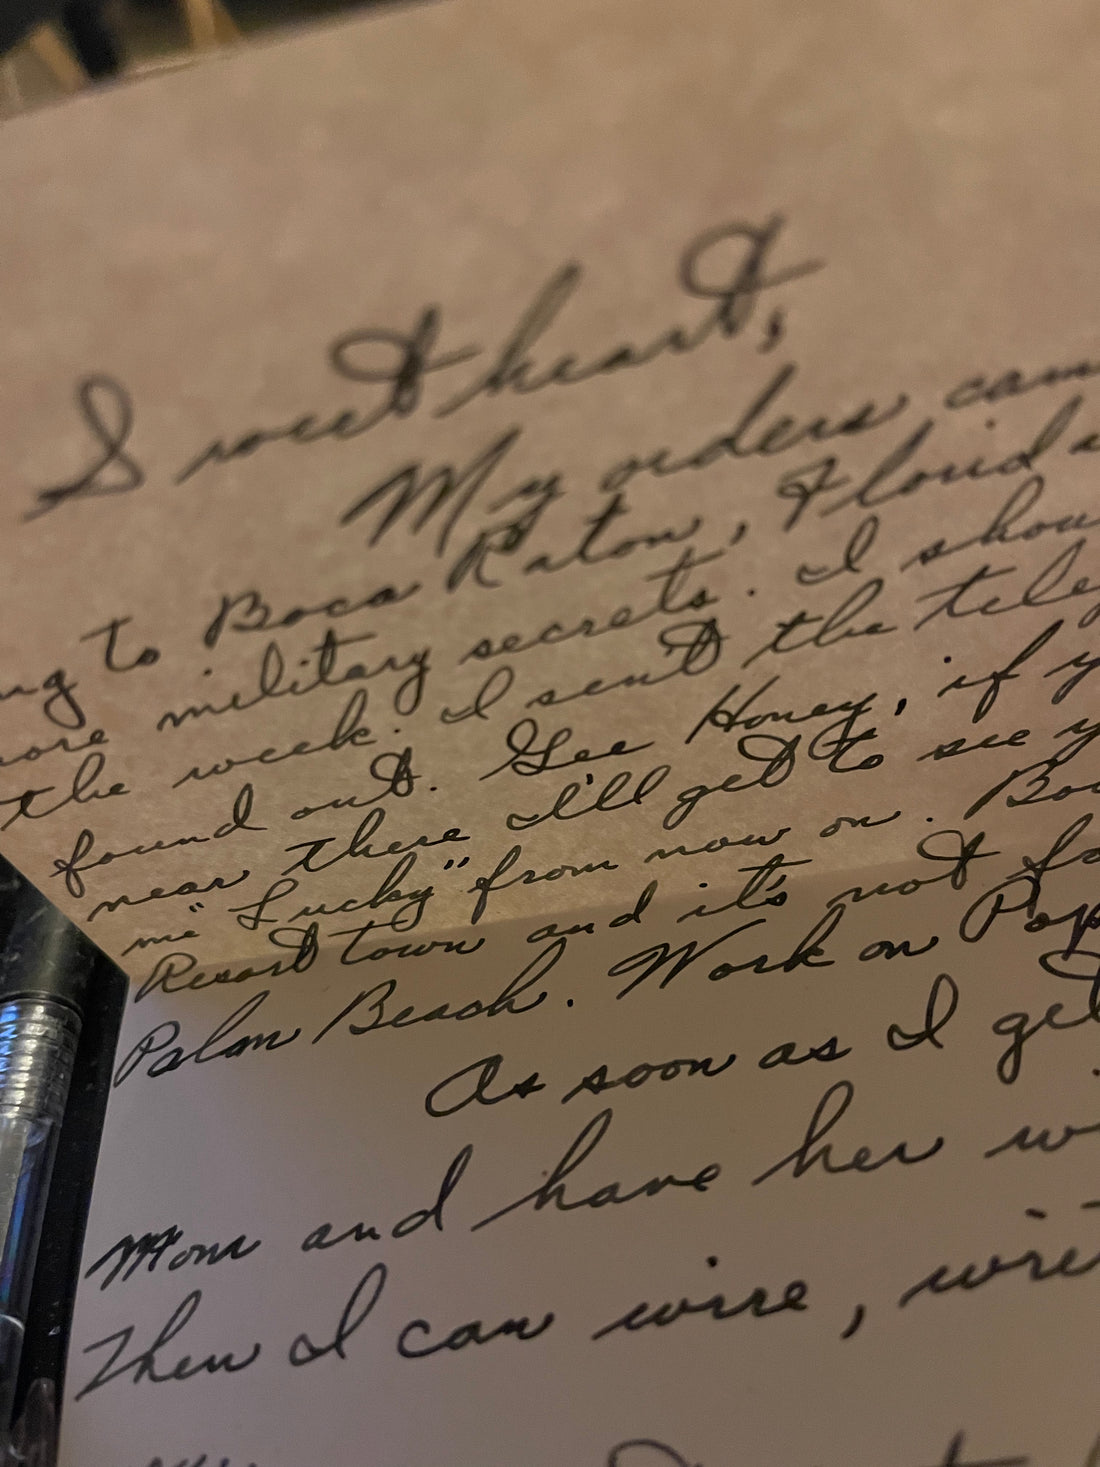 Sweetheart,
My orders cam
ng to Boca Raton, Florida
ore military secrets. I shou
the week. I sent the tele
found out. Gee Honey, if y
near there I'll get to see y
me "Lucky" from now on. Boc
Resort town and it's not fa
Palm Beach. Work on Pop
As soon as I get
Mom and have her wi
Then I can wire, writ